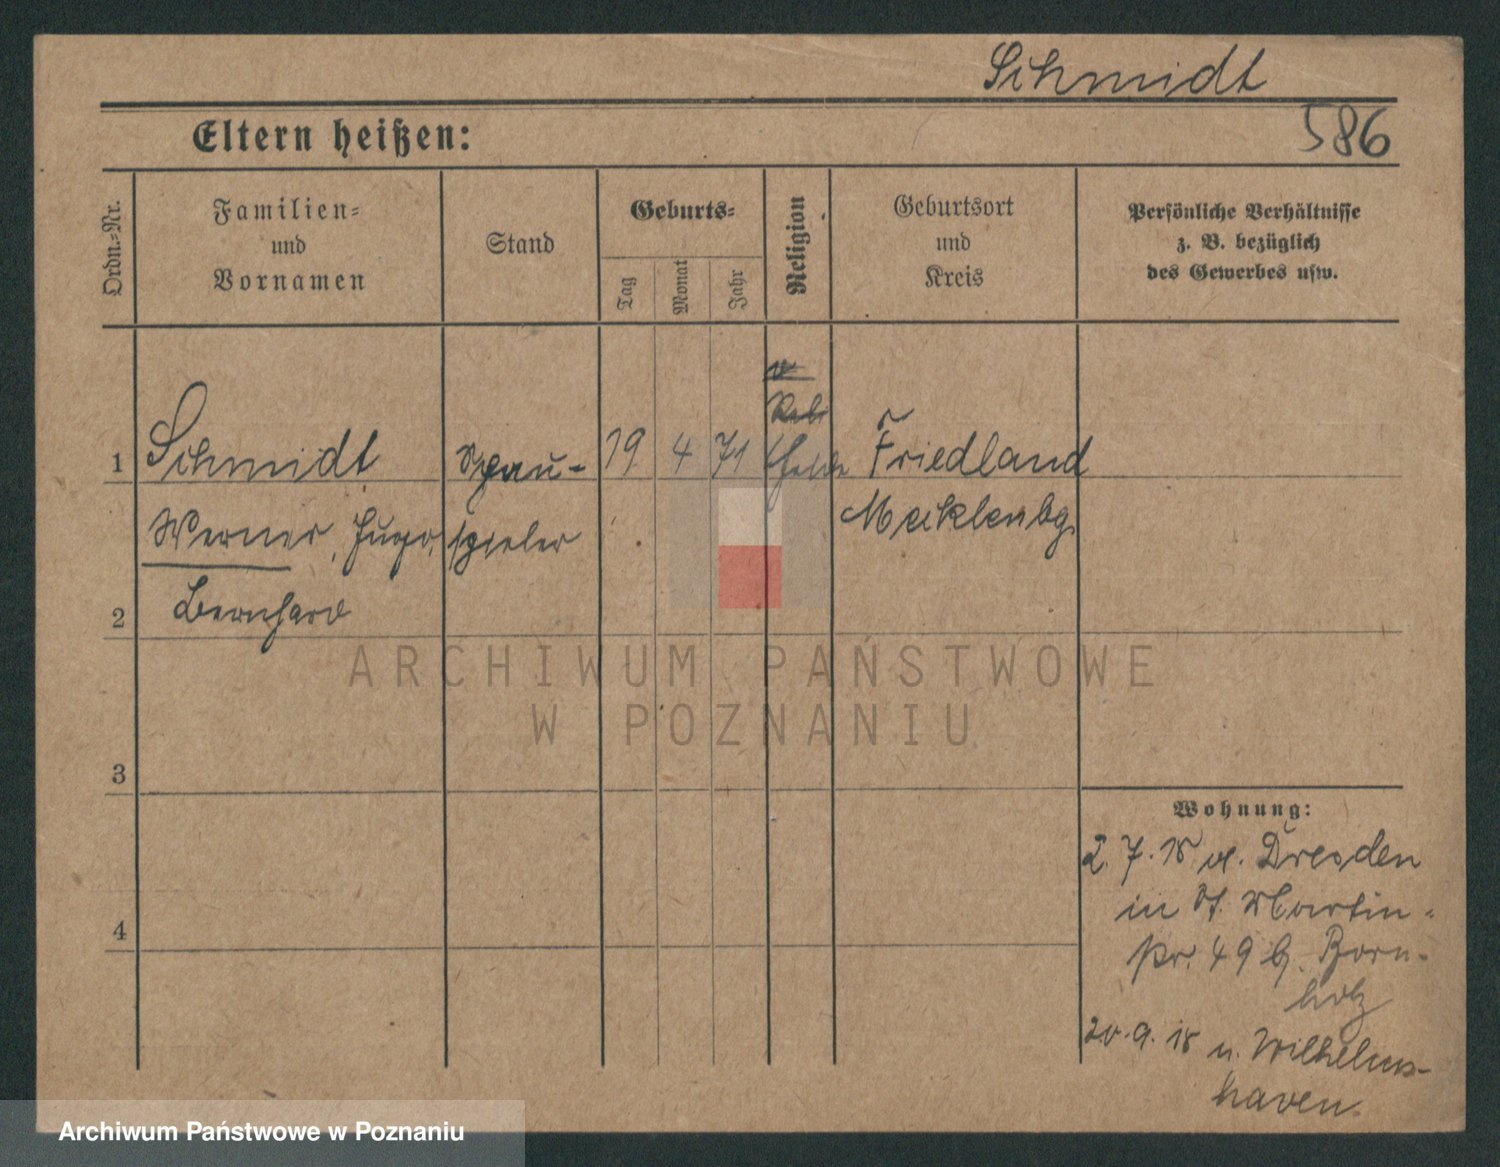 Schmidt
586
Eltern heißen:
Ordn.-Nr.
Familien-
und
Vornamen
Stand
Geburts-
Tag
Monat
Jahr
Religion
Geburtsort
und
Kreis
Persönliche Verhältnisse
z. B. bezüglich
des Gewerbes usw.
1 Schmidt Schau- 19 4 71 Friedland
Werner, Hugo, spieler Mecklenbg.
2 Bernhard
3
4
Wohnung:
2.7.18 v. Dresden
in St. Martin-
str. 49 b. Born-
holz
20.9.18 n. Wilhelms-
haven.
ARCHIWUM PAŃSTWOWE
W POZNANIU
Archiwum Państwowe w Poznaniu